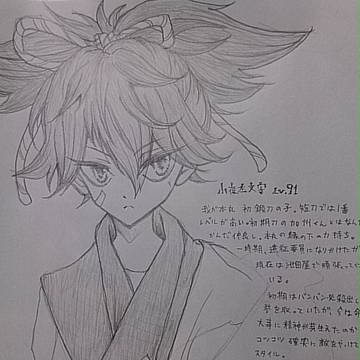 小夜左文字 Lv.91
我が本丸 初鍛刀の子。短刀では1番
レベルが高い。初期刀の加州くんとはなん
だかんだ仲良し。本丸の縁の下の力持ち。
一時期、遠征番長になりかけたが
現在は池田屋で頑張って
いる。
初期はバンバン必殺出し
誉を取っていたが、今は命
大事に精神が芽生えたのか
コツコツ 確実に敵を
スタイル。